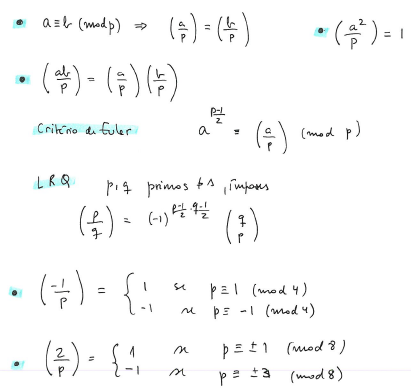 • a ≡ b (mod p) ⇒ (a/p) = (b/p) • (a²/p) = 1
• (ab/p) = (a/p) (b/p)
Critério de Euler a^((p-1)/2) ≡ (a/p) (mod p)
LRQ p, q primos ≠s, ímpares
(p/q) = (-1)^((p-1)/2 · (q-1)/2) (q/p)
• (-1/p) = { 1 se p ≡ 1 (mod 4)
-1 se p ≡ -1 (mod 4)
• (2/p) = { 1 se p ≡ ±1 (mod 8)
-1 se p ≡ ±3 (mod 8)